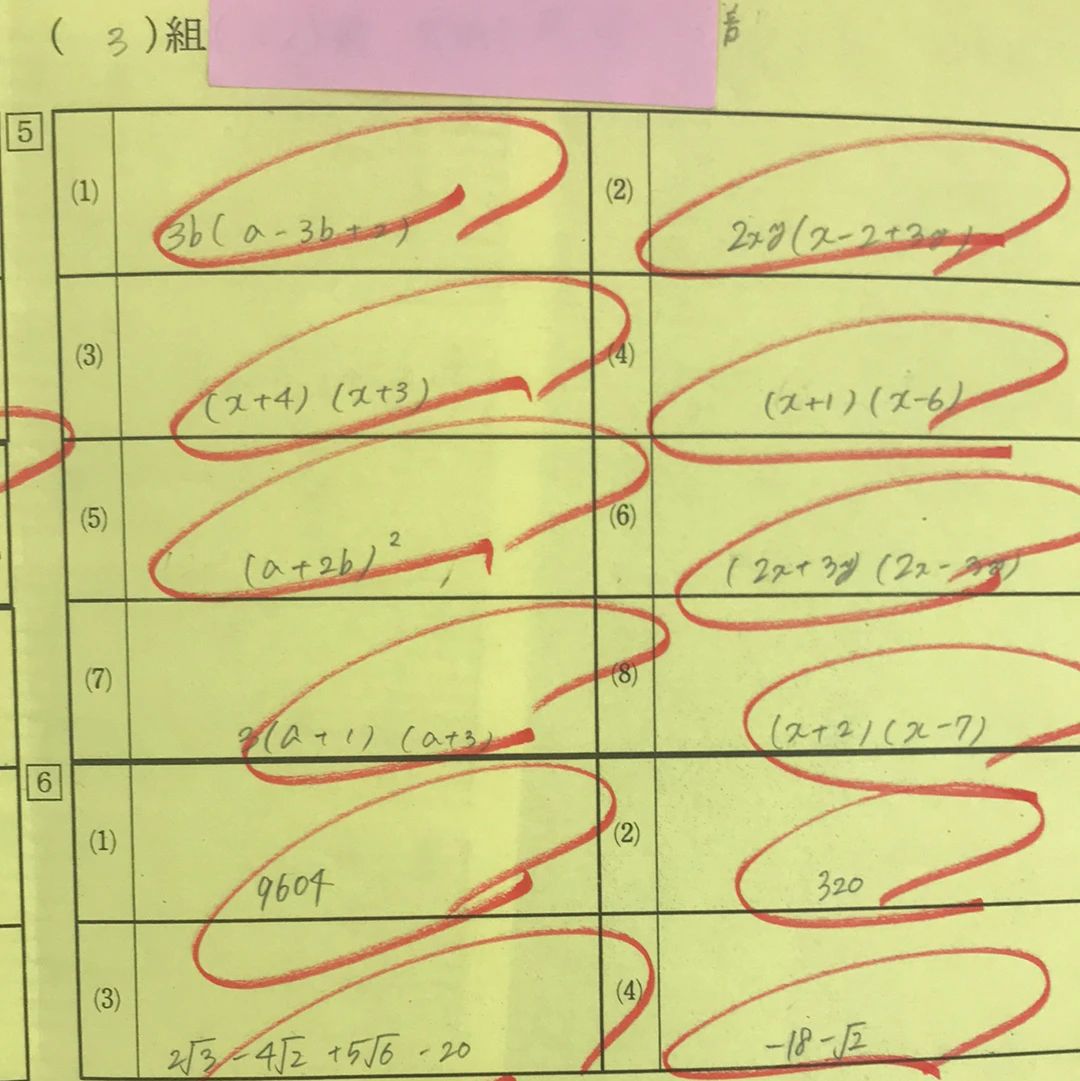 ( 3 )組
5
(1) 3b( a - 3b + 2)
(2) 2xy(x-2+3y)
(3) (x+4) (x+3)
(4) (x+1) (x-6)
(5) (a+2b)²
(6) (2x+3y) (2x-3y)
(7) 3(a+1) (a+3)
(8) (x+2) (x-7)
6
(1) 9604
(2) 320
(3) 2√3 - 4√2 + 5√6 - 20
(4) -18-√2